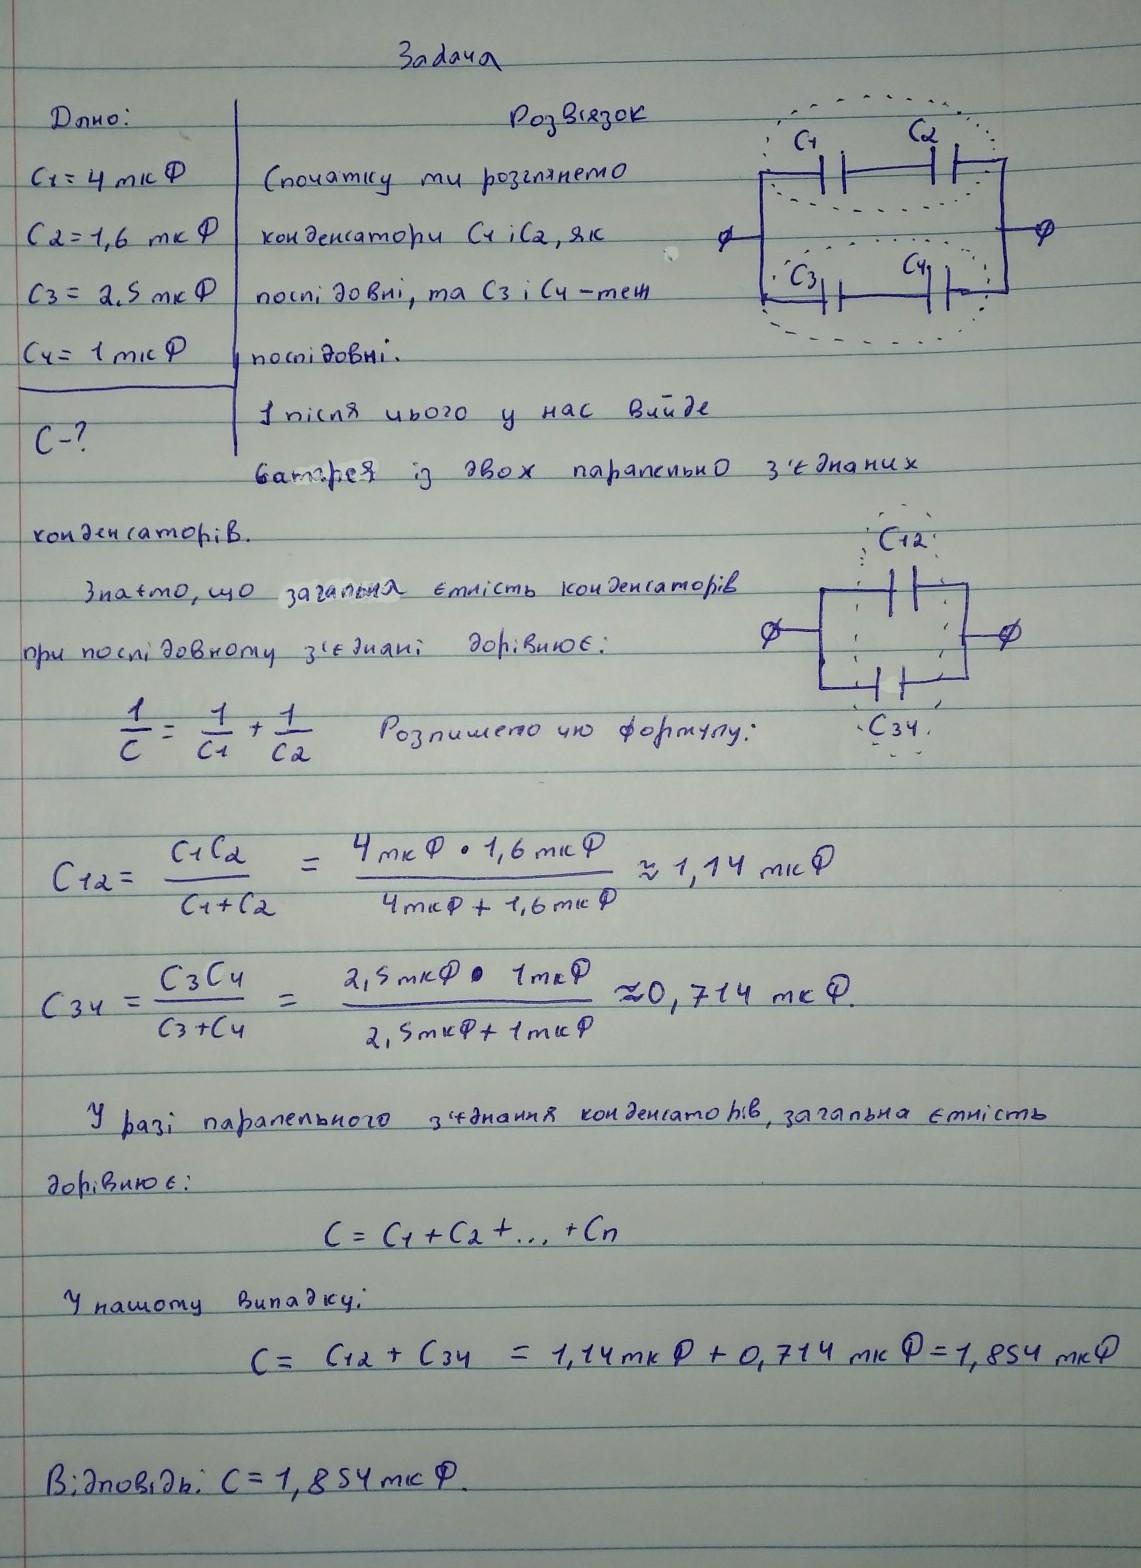 Задача
Дано:
Розв'язок
C1 = 4 мкФ
Спочатку ми розглянемо
C2 = 1,6 мкФ
конденсатори C1 і C2, як
C3 = 2,5 мкФ
послідовні, та C3 і C4 – теж
C4 = 1 мкФ
послідовні.
C1 C2
C3 C4
C-?
І після цього у нас вийде
батарея із двох паралельно з'єднаних
конденсаторів.
C12
Знаємо, що загальна ємність конденсаторів
при послідовному з'єднані дорівнює:
C34
1/C = 1/C1 + 1/C2 Розпишемо цю формулу:
C12 = C1C2/C1+C2 = 4мкФ • 1,6мкФ/4мкФ + 1,6мкФ ≈ 1,14 мкФ
C34 = C3C4/C3+C4 = 2,5мкФ • 1мкФ/2,5мкФ + 1мкФ ≈ 0,714 мкФ.
У разі паралельного з'єднання конденсаторів, загальна ємність
дорівнює:
C = C1 + C2 + ... + Cn
У нашому випадку:
C = C12 + C34 = 1,14мкФ + 0,714 мкФ = 1,854 мкФ
Відповідь: C = 1,854мкФ.